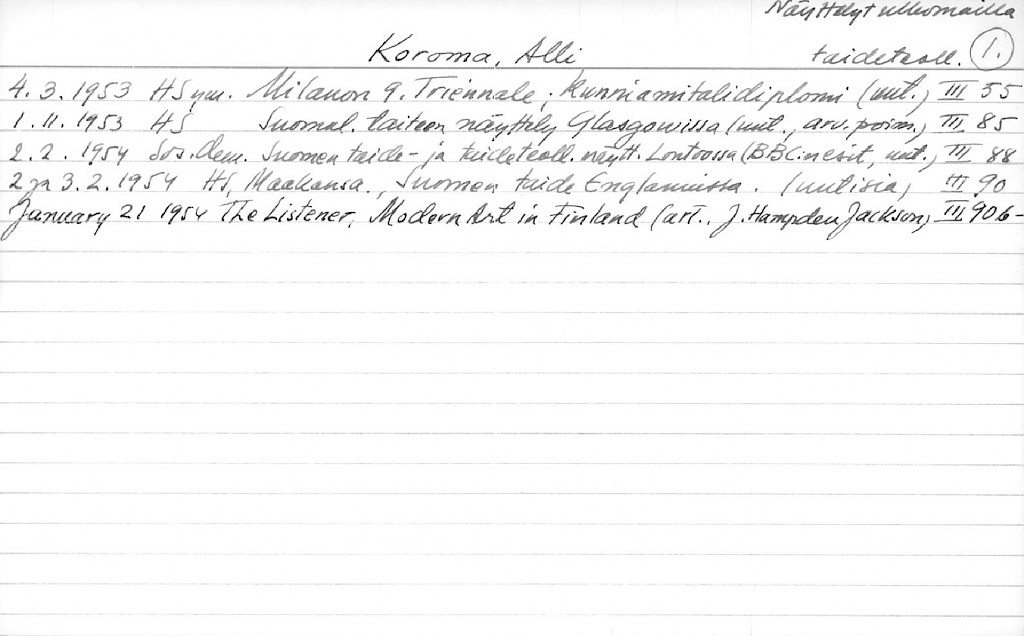 Näyttelyt ulkomailla
Koroma, Alli taideteoll. 1.
4.3.1953 HS ym. Milanon 9. Triennale, kunniamitalidiplomi (uut.) III 55
1.11.1953 HS Suomal. taiteen näyttely Glasgowissa (uut., arv. poim.) III 85
2.2.1954 Sos.Dem. Suomen taide- ja taideteoll. näytt. Lontoossa (BBC:n esit, uut.) III 88
2 ja 3.2.1954 HS, Maakansa., Suomen taide Englannissa. (uutisia) III 90
January 21 1954 The Listener, Modern Art in Finland (art., J. Hampden Jackson) III 90b-